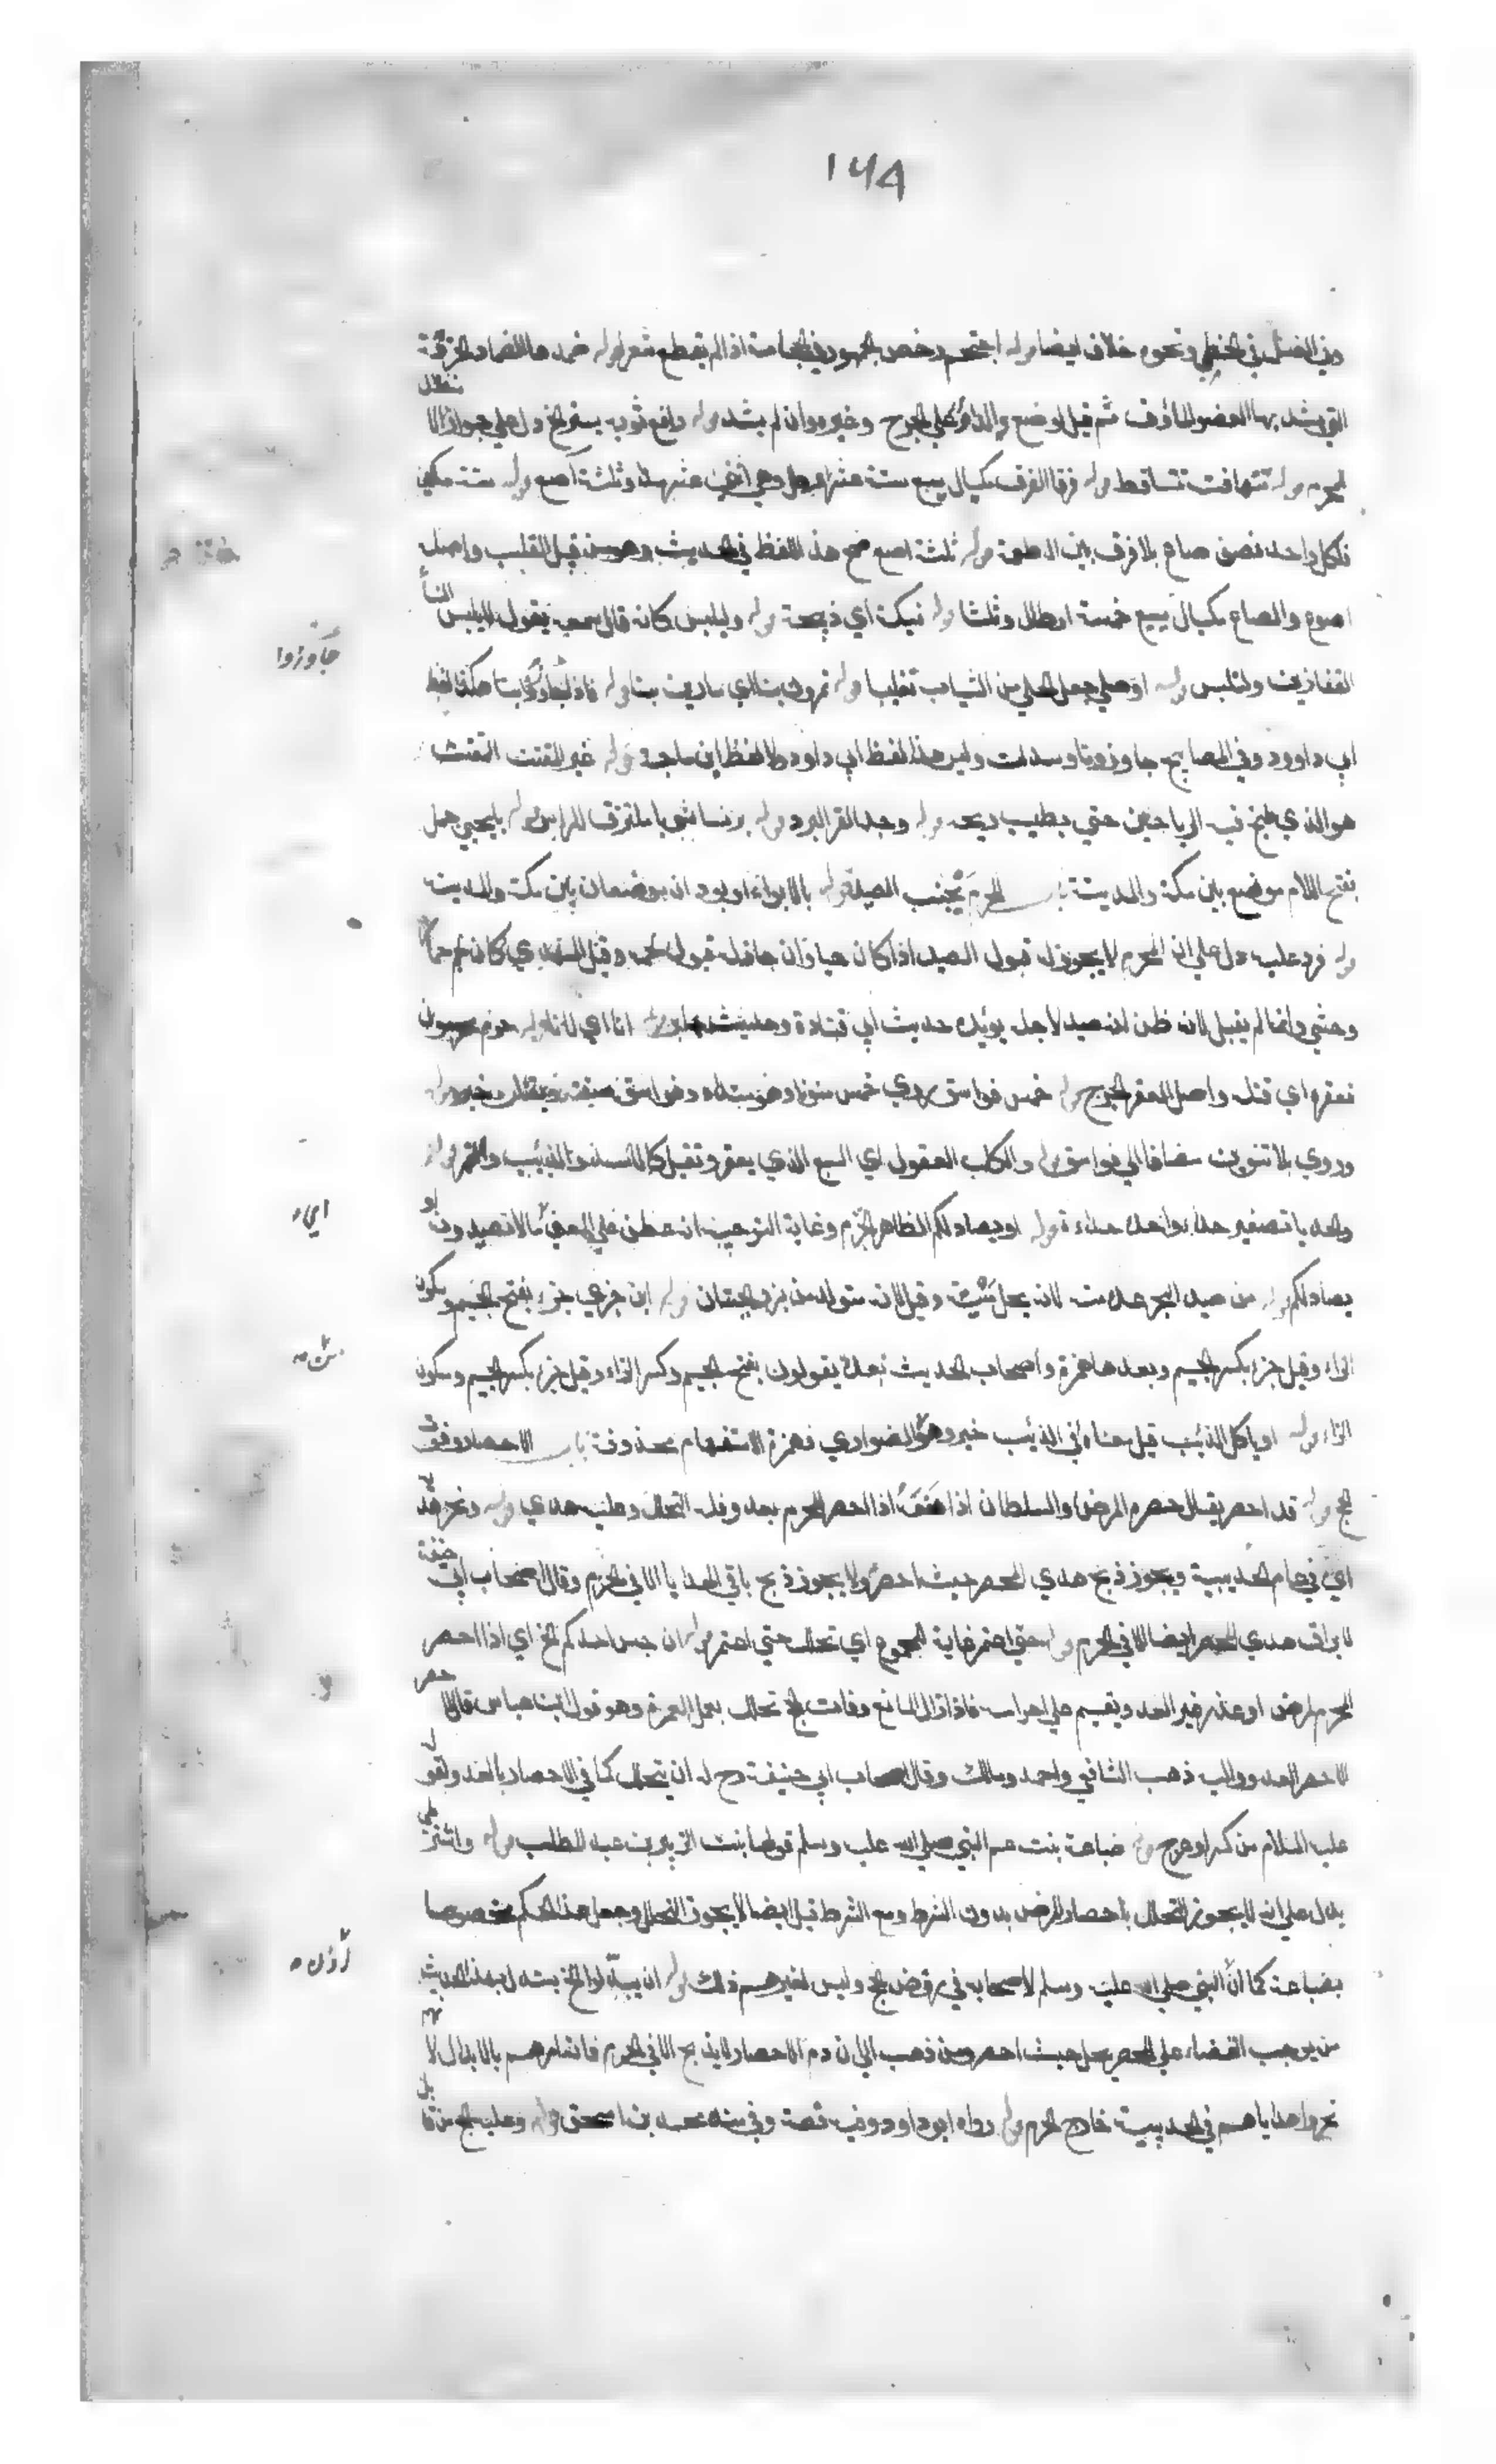 ١٦٨
وفي الغسل في الخطمي ونحوه خلاف ايضا قوله احتجم رخص الجمهور في الحجامة اذا لم يقطع شعرا قوله ضمدهما الضماد الخرقة
التي يشد بها العضو المأوف ثم قيل لوضع الدواء على الجرح وغيره وان لم يشد قوله رافع ثوبه يستره الخ دل على جواز الاستظلال
للمحرم قوله تتهافت تتساقط قوله فرقا الفرق مكيال يسع ستة عشر رطلا وهي اثني عشر مدا وثلثة آصع قوله ستة مساكين
فلكل واحد نصف صاع بلا فرق بين الاطعمة قوله ثلثة اصع صح هذا اللفظ في الحديث وهو من قبيل القلب واصله
اصوع والصاع مكيال يسع خمسة ارطال وثلثا قوله نسيكة أي ذبيحة قوله ولتلبس كانه قال سمعه يقول لا يلبس النسأ
القفازين ولتلبس قوله اوحلي جعل الحلي من الثياب تغليبا قوله يمرون بنا اي مارين بنا قوله فاذا جاوزوا بنا هكذا لفظ
ابي داوود وفي المصابيح جاوزونا وسدلت وليس هذا لفظ ابي داود ولا لفظ ابن ماجة قوله غير المقتت المقتت
هو الذي طبخ فيه الرياحين حتي يطيب ريحه قوله وجد القر البرد قوله برنسا ثوبا ملتزقا للراس قوله بلحيي جمل
بفتح اللام موضع بين مكة والمدينة باب المحرم يجتنب الصيد قوله بالابواء او بودان موضعان بين مكة والمدينة
قوله فرد عليه دل على ان المحرم لا يجوز له قبول الصيد اذا كان حيا وان جاز له قبول لحمه وقيل المهدي كان لحم حمار
وحشي وانما لم يقبل لانه ظن انه صيد لاجله يؤيده حديث ابي قتادة وحديث جابر قوله انا اي لانا قوله حرم محرمون
فعقره اي قتله واصل العقر الجرح قوله خمس فواسق روي خمس منونا وهو مبتداء وفواسق صفته ويقتلن خبره قوله
وروي بلا تنوين مضافا الي فواسق قوله والكلب العقور اي السبع الذي يعقر ويقتل كالاسد والذئب والنمر قوله
والحديا تصغير حدأ واحده حداءة قوله او يصاد لكم الظاهر الجزم وغاية التوجيه انه عطف علي المعني اي ما لا تصيدونه او
يصاد لكم قوله من صيد البحر عده منه لانه يحل ميتته وقيل لانه متولد من بزر الحيتان قوله ابن جزي جزء بفتح الجيم وسكون
الزاء وقيل جزء بكسر الجيم وبعدها همزة واصحاب الحديث بعده يقولون بفتح الجيم وكسر الزاء وقيل جزء بكسر الجيم وسكون
الزاء قوله او ياكل الذئب قيل معناه أفي الذئب خير وهو الضواري فهمزة الاستفهام محذوفة باب الاحصار وفوت
الحج قوله قد احصر يقال حصره المرض والسلطان اذا منعه اذا احصر المحرم بعدو فله التحلل وعليه هدي قوله ونحر هديه
اي في عام الحديبية ويجوز ذبح هدي المحصر حيث احصر ولا يجوز ذبح باقي الهدايا الا في الحرم وقال اصحاب ابي حنيفة
لا يراق هدي المحصر ايضا الا في الحرم قوله حتي اعتمر غاية المجموع اي تحلل حتي اعتمر قوله ان حبس احدكم الخ اي اذا احصر
المحرم لمرض او عذر غير العدو يقيم علي احرامه فاذا زال المانع وفات الحج تحلل بعمل العمرة وهو قول ابن عباس قال لا حصر
الا حصر العدو واليه ذهب الشافعي واحمد ومالك وقال اصحاب ابي حنيفة رح له ان يتحلل كما في الاحصار بالعدو لقوله
عليه السلام من كسر او عرج قوله ضباعة بنت عم النبي صلي الله عليه وسلم فانها بنت الزبير بن عبد المطلب قوله واشترطي
يدل على انه لا يجوز التحلل باحصار المرض بدون الشرط ومع الشرط قيل ايضا لا يجوز التحلل وجعل هذا الحكم مخصوصا
بضباعة كما انّ النبي صلي الله عليه وسلم لاصحابه في رفض الحج وليس لغيرهم ذلك قوله ان يبدّلوا الخ يستدل بهذا الحديث
من يوجب القضاء علي المحصر يحل حيث احصر ومن ذهب الي ان دم الاحصار لا يذبح الا في الحرم فانه امرهم بالابدال لانهم
نحروا هداياهم في الحديبية خارج الحرم قوله رواه ابو داود وفيه قصة وفي سنده محمد بن اسحق قوله وعليه الحج من قابل
جاوزوا